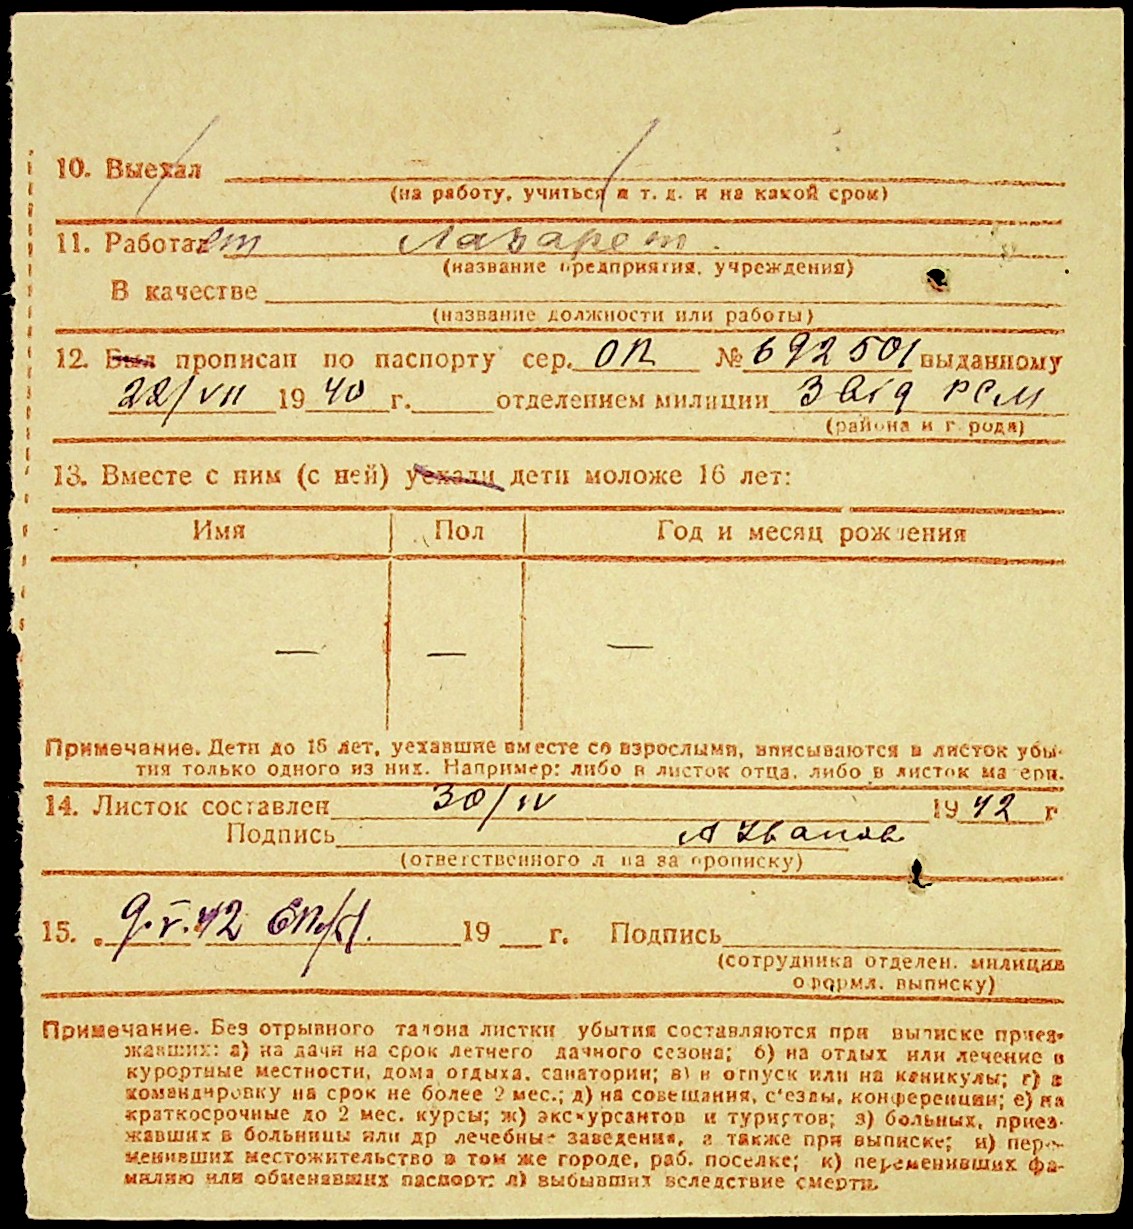 10. Выехал
(на работу, учиться и т. д. и на какой срок)
11. Работает Лазарет.
(название предприятия, учреждения)
В качестве
(название должности или работы)
12. Был прописан по паспорту сер. ОП № 692501 выданному
22/VII 1940 г. отделением милиции 3 РСМ
(района и города)
13. Вместе с ним (с ней) уехали дети моложе 16 лет:
Имя Пол Год и месяц рождения
— — —
Примечание. Дети до 16 лет, уехавшие вместе со взрослыми, вписываются в листок убы-
тия только одного из них. Например: либо в листок отца, либо в листок матери.
14. Листок составлен 30/IV 1942 г
Подпись А Иванов
(ответственного лица за прописку)
15. 9.V.42 19 г. Подпись
(сотрудника отделен. милиции
оформл. выписку)
Примечание. Без отрывного талона листки убытия составляются при выписке приез-
жавших: а) на дачи на срок летнего дачного сезона; б) на отдых или лечение в
курортные местности, дома отдыха, санатории; в) в отпуск или на каникулы; г) в
командировку на срок не более 2 мес.; д) на совещания, с'езды, конференции; е) на
краткосрочные до 2 мес. курсы; ж) экскурсантов и туристов; з) больных, приез-
жавших в больницы или др лечебные заведения, а также при выписке; и) пере-
менивших местожительство в том же городе, раб. поселке; к) переменивших фа-
милию или обменявших паспорт; л) выбывших вследствие смерти.